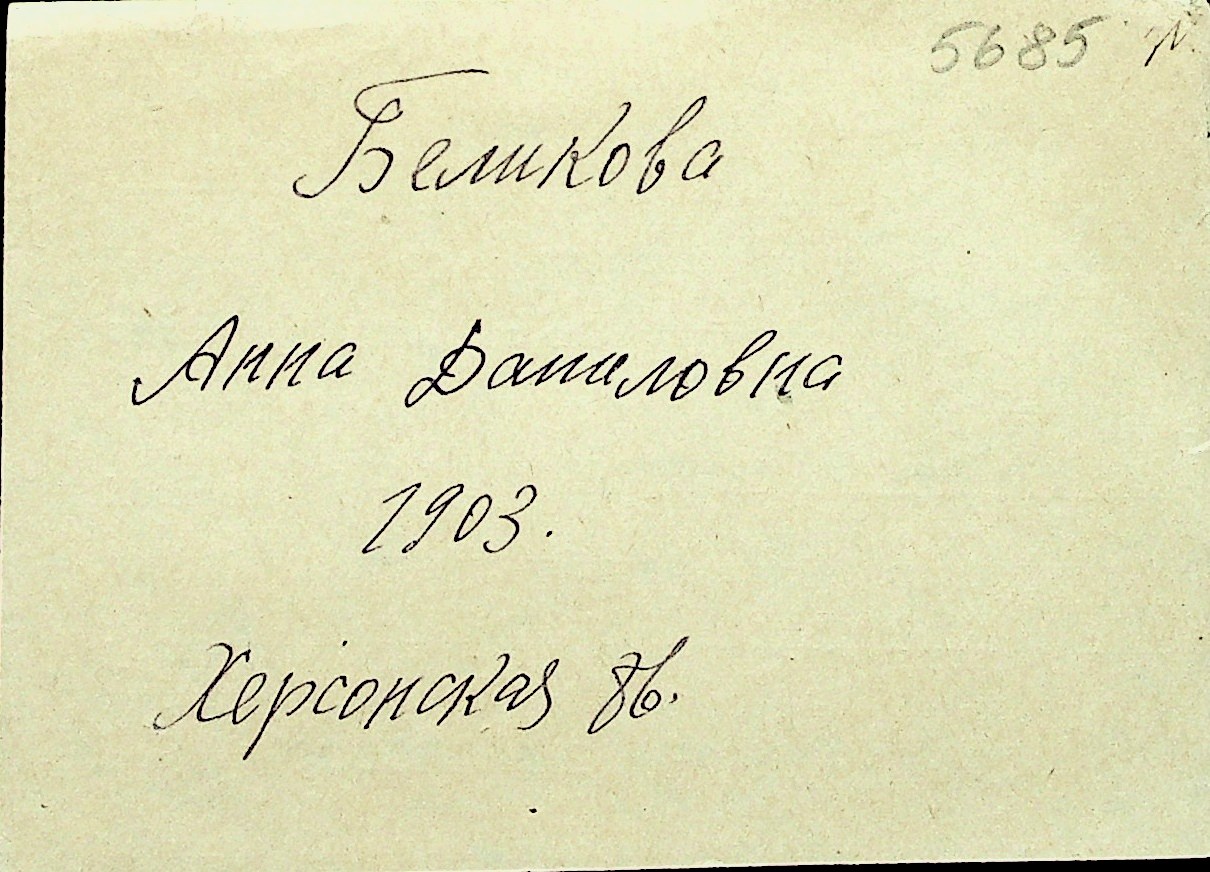 5685
Беликова
Анна Даниловна
1903.
Херсонская